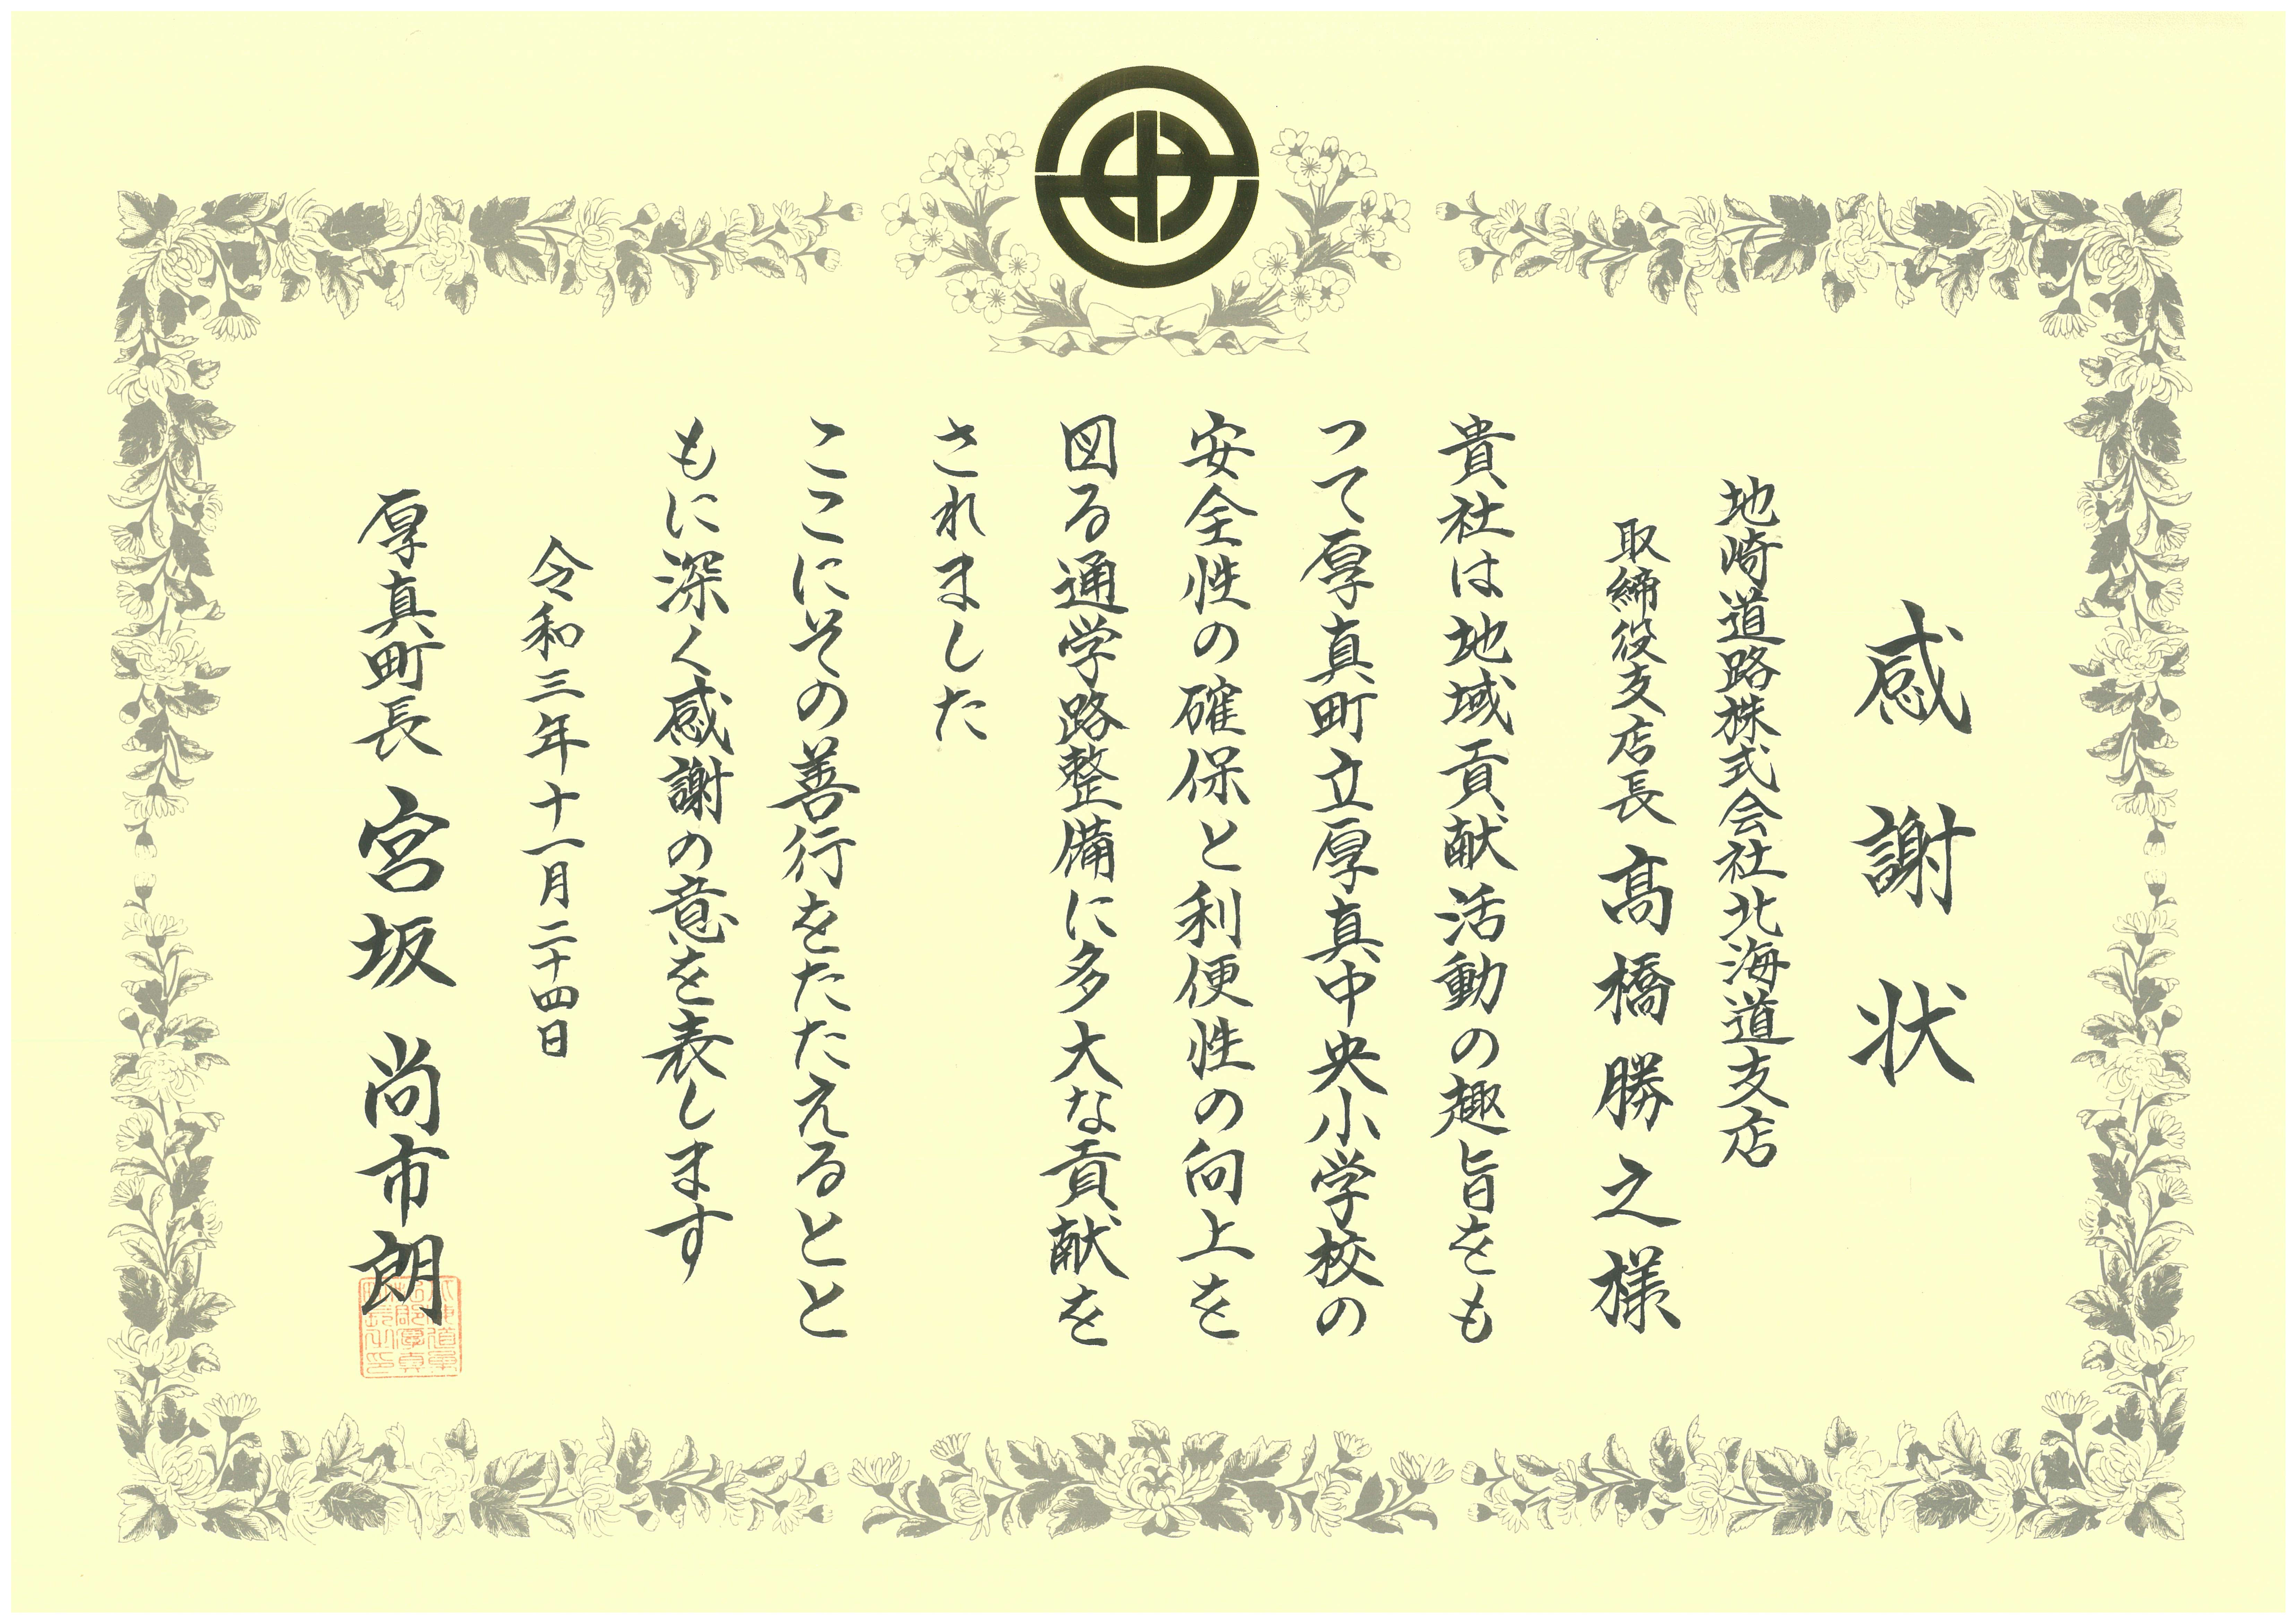 感謝状
地崎道路株式会社北海道支店
取締役支店長 髙橋勝之様
貴社は地域貢献活動の趣旨をも
って厚真町立厚真中央小学校の
安全性の確保と利便性の向上を
図る通学路整備に多大な貢献を
されました
ここにその善行をたたえるとと
もに深く感謝の意を表します
令和三年十一月二十四日
厚真町長 宮坂尚市朗